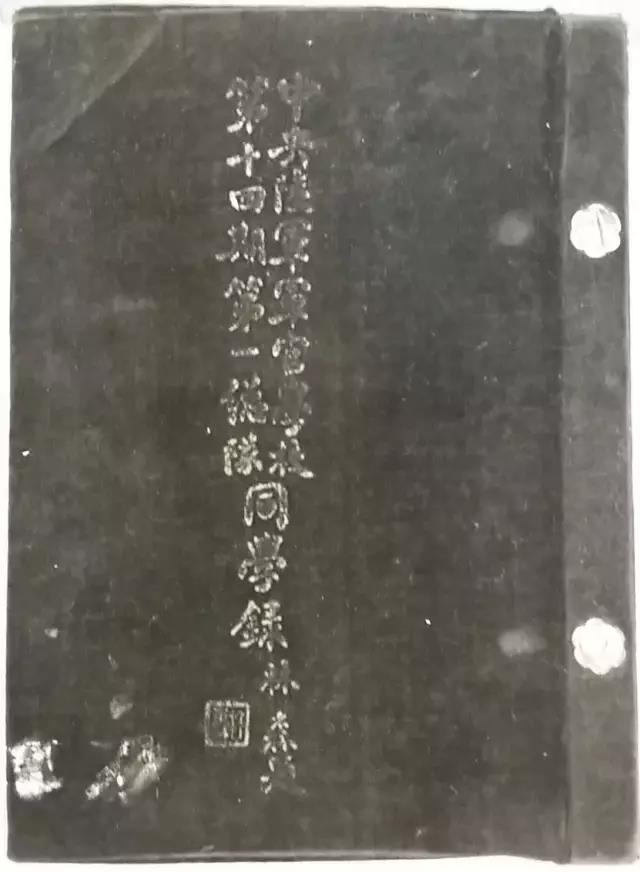 中央陸軍軍官學校
第十四期第一總隊
同學錄
林森題